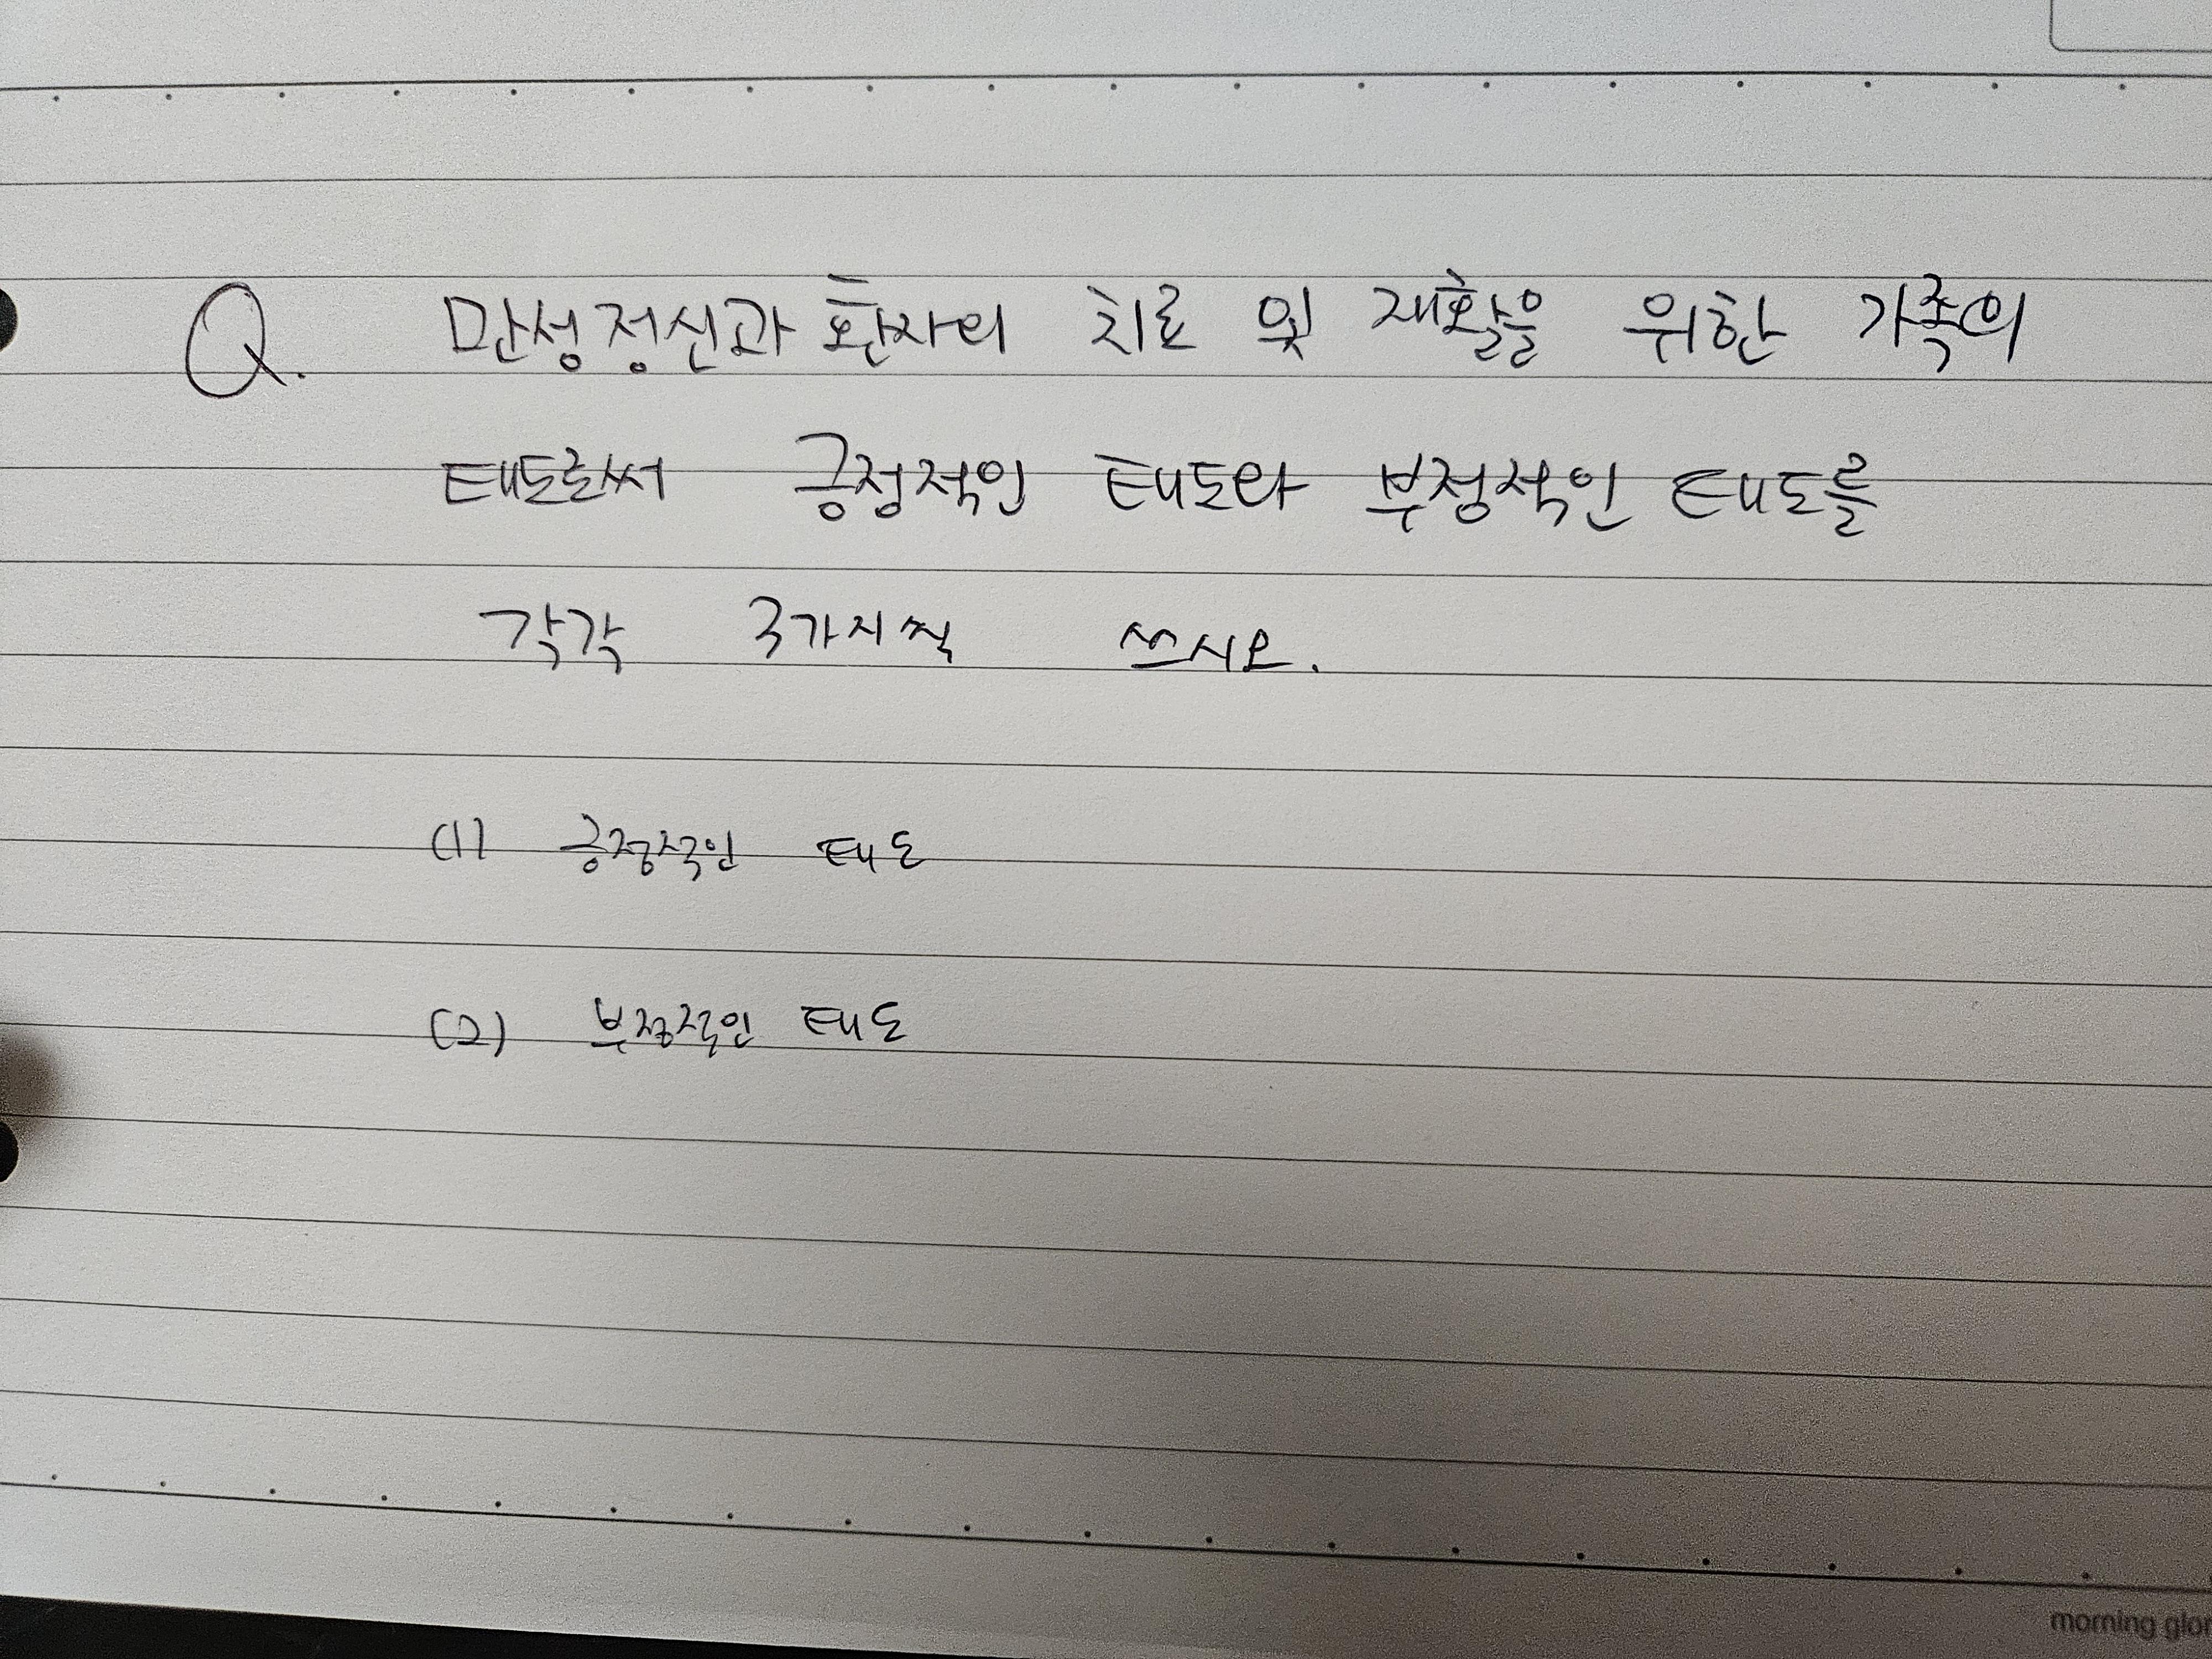 Q. 만성정신과 환자의 치료 및 재활을 위한 가족의
태도로써 긍정적인 태도와 부정적인 태도를
각각 3가지씩 쓰시오.
(1) 긍정적인 태도
(2) 부정적인 태도
morning glor